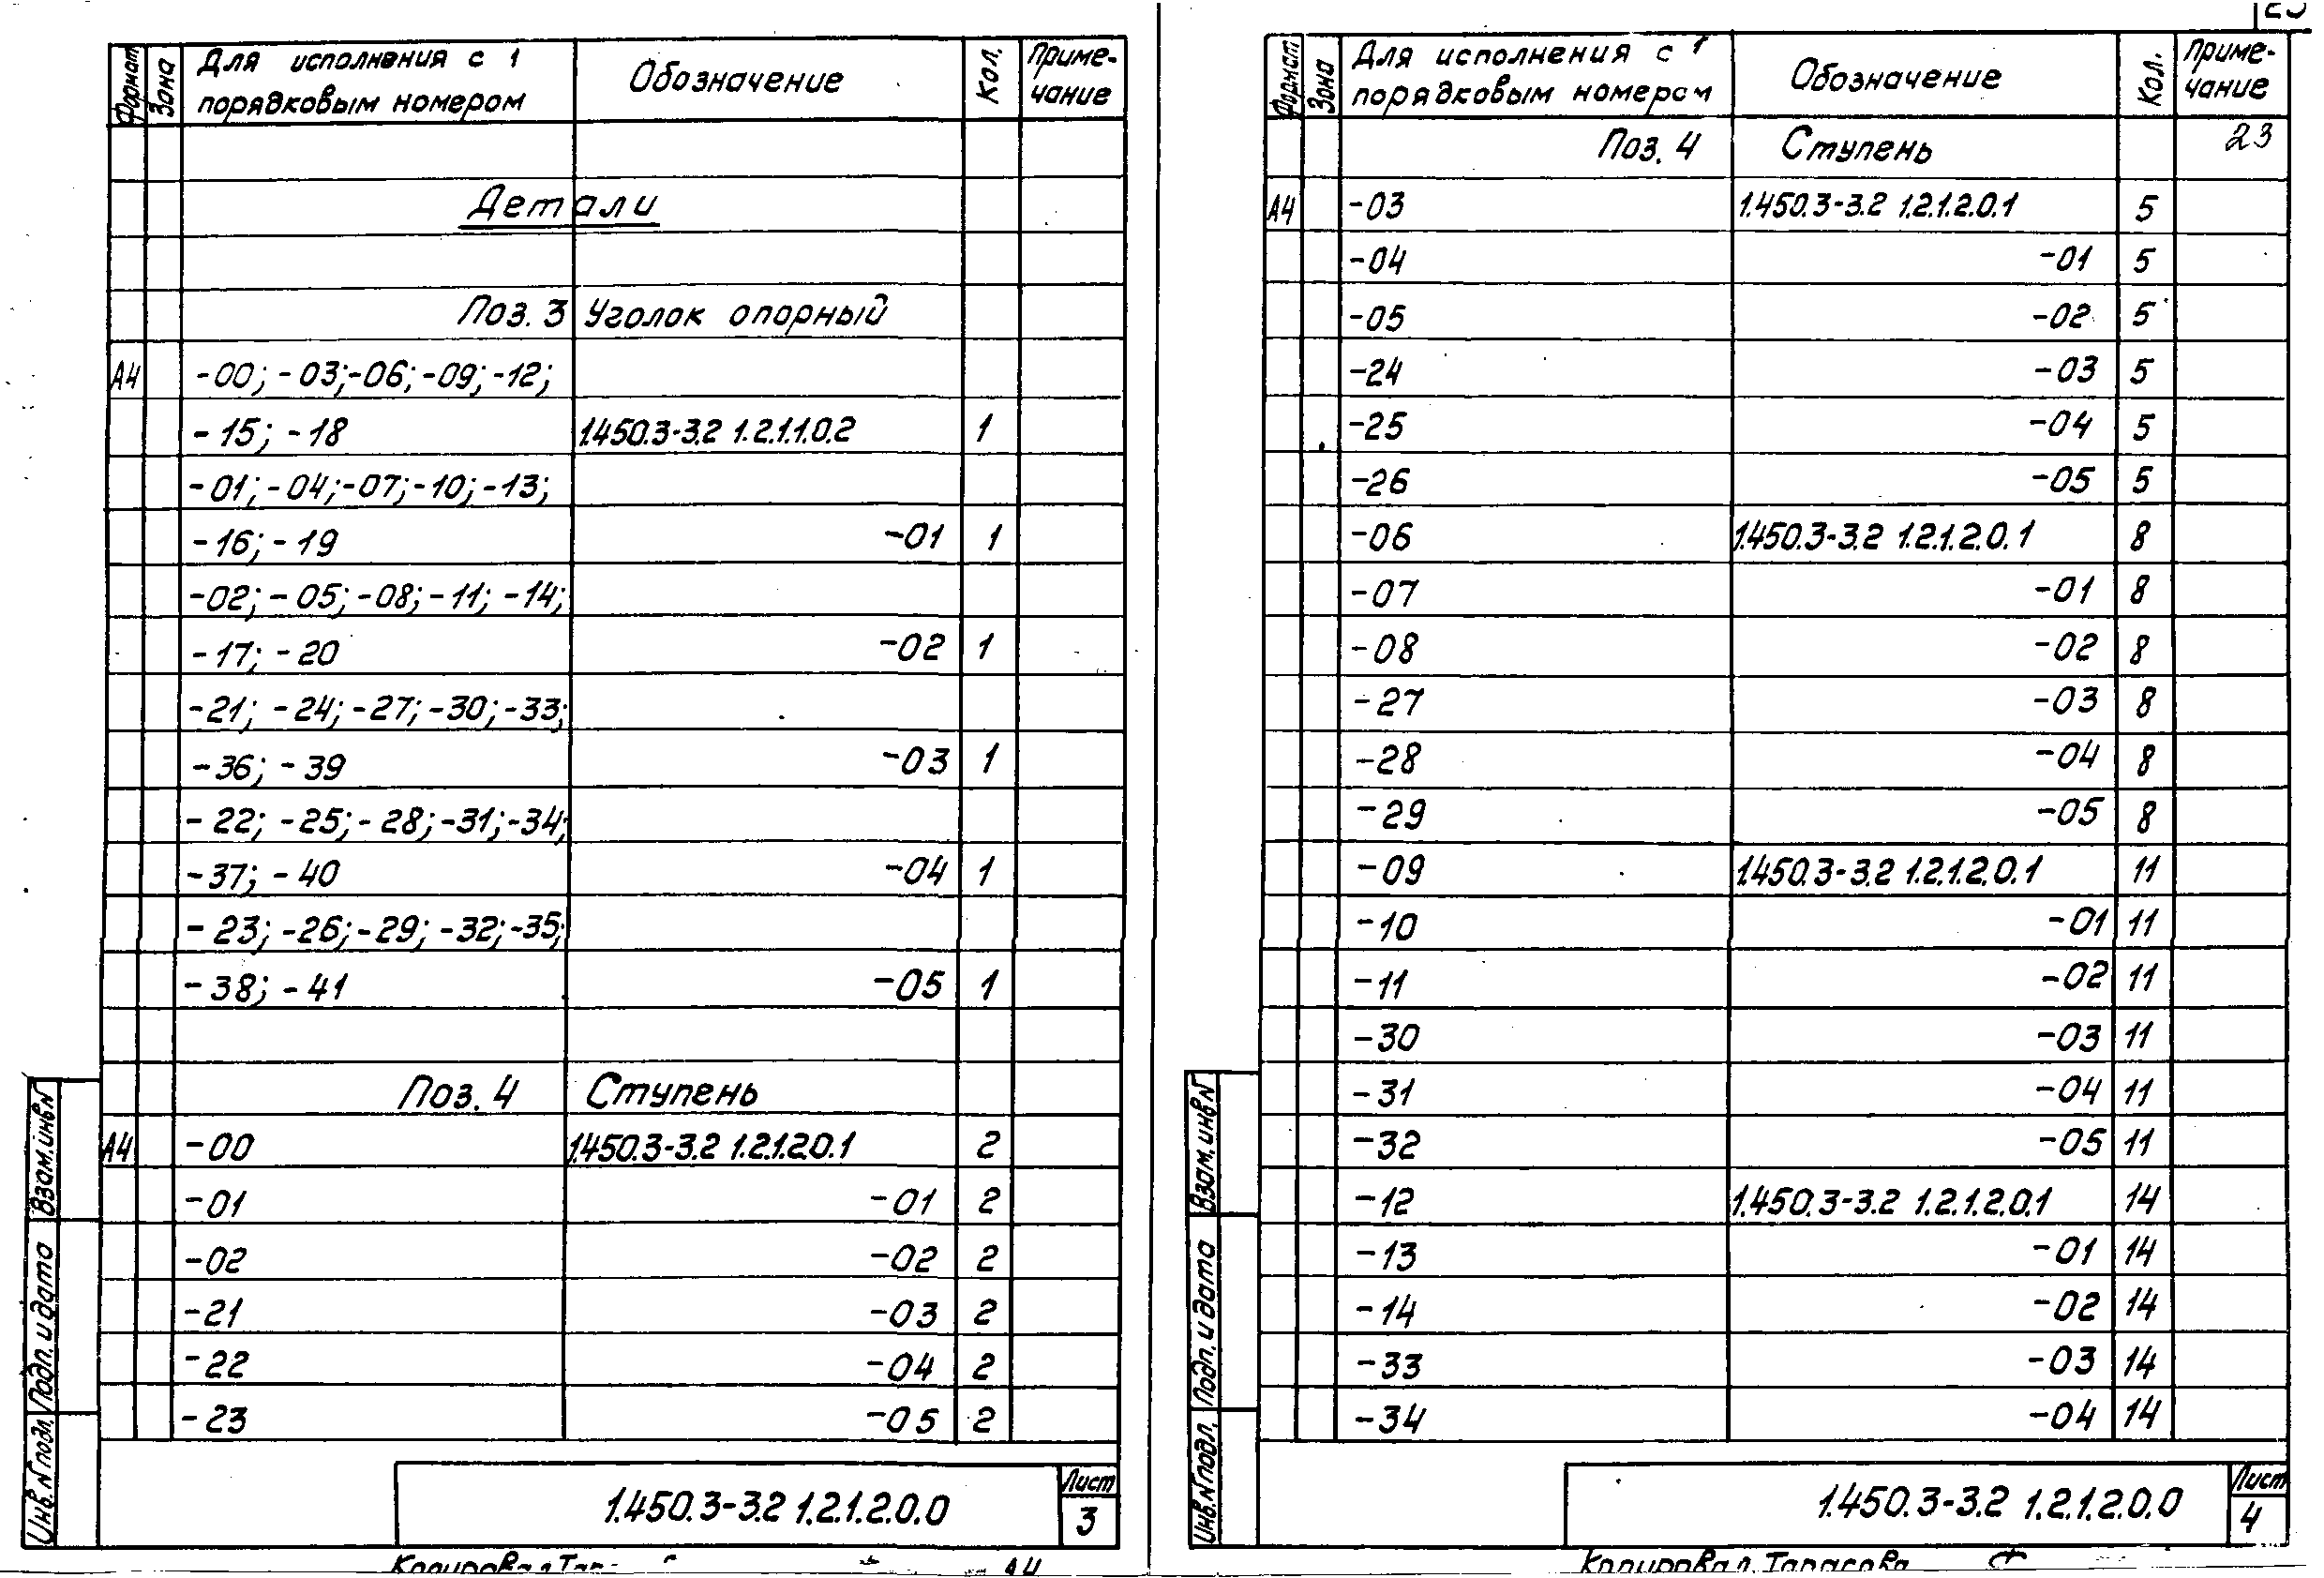 Формат Зона Для исполнения с 1 порядковым номером Обозначение Кол. Приме-чание
Детали
Поз. 3 Уголок опорный
А4 -00; -03; -06; -09; -12;
-15; -18 1.450.3-3.2 1.2.1.1.0.2 1
-01; -04; -07; -10; -13;
-16; -19 -01 1
-02; -05; -08; -11; -14;
-17; -20 -02 1
-21; -24; -27; -30; -33;
-36; -39 -03 1
-22; -25; -28; -31; -34;
-37; -40 -04 1
-23; -26; -29; -32; -35;
-38; -41 -05 1
Поз. 4 Ступень
А4 -00 1.450.3-3.2 1.2.1.2.0.1 2
-01 -01 2
-02 -02 2
-21 -03 2
-22 -04 2
-23 -05 2
Взам. инв. N
Подп. и дата
Инв. N подл.
1.450.3-3.2 1.2.1.2.0.0
Лист
3
Формат Зона Для исполнения с 1 порядковым номером Обозначение Кол. Приме-чание
Поз. 4 Ступень 23
А4 -03 1.450.3-3.2 1.2.1.2.0.1 5
-04 -01 5
-05 -02 5
-24 -03 5
-25 -04 5
-26 -05 5
-06 1.450.3-3.2 1.2.1.2.0.1 8
-07 -01 8
-08 -02 8
-27 -03 8
-28 -04 8
-29 -05 8
-09 1.450.3-3.2 1.2.1.2.0.1 11
-10 -01 11
-11 -02 11
-30 -03 11
-31 -04 11
-32 -05 11
-12 1.450.3-3.2 1.2.1.2.0.1 14
-13 -01 14
-14 -02 14
-33 -03 14
-34 -04 14
Взам. инв. N
Подп. и дата
Инв. N подл.
1.450.3-3.2 1.2.1.2.0.0
Лист
4
Копировал Тарасова